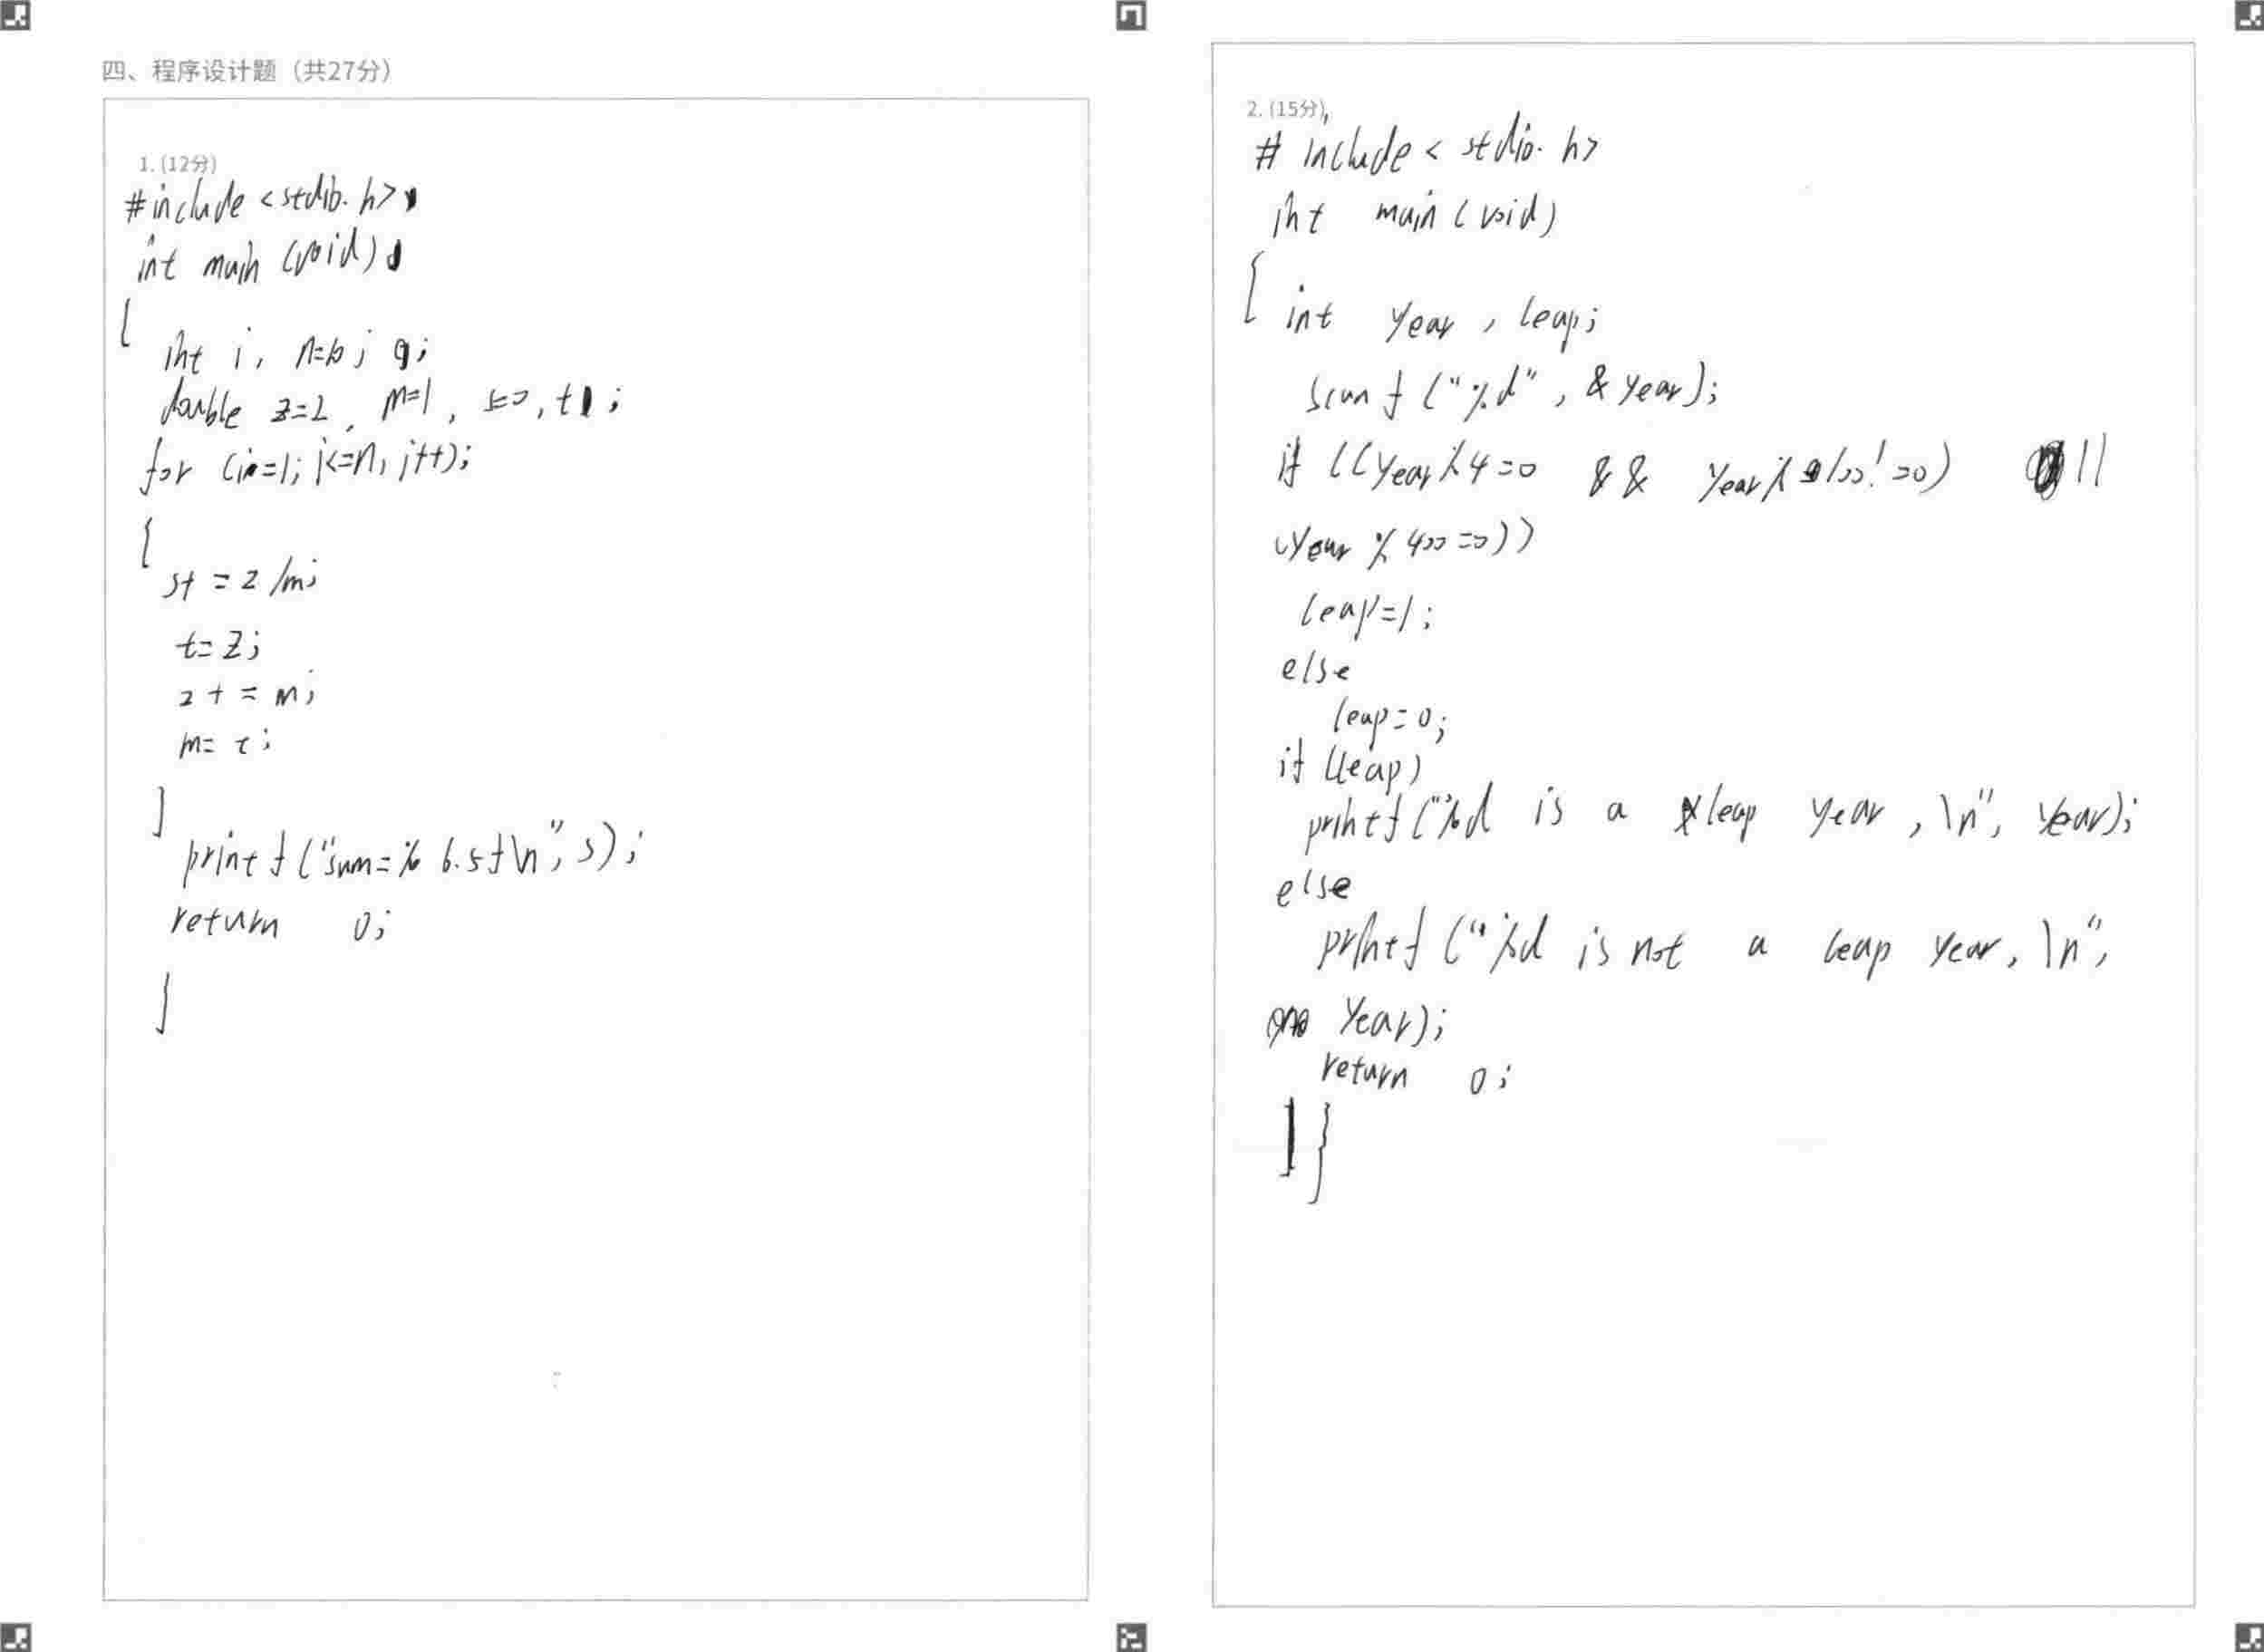 四、程序设计题（共27分）
1. (12分)
#include <stdio.h>
int main (void)
{
int i, n=10; 9;
double z=2, m=1, s=0, t;
for (i=1; i<=n, i++);
{
s+ = z/m;
t= z;
z + = m;
m= t;
}
printf ("sum=% 6.5f\n", s);
return 0;
}
2. (15分)
# include < stdio. h>
int main (void)
{ int year , leap;
scanf ("%d" , & year);
if ((year%4=0 && year%100!=0) ||
(year % 400 =0))
leap=1;
else
leap=0;
if (leap)
printf ("%d is a leap year , \n", year);
else
printf ("%d is not a leap year, \n",
year);
return 0;
}